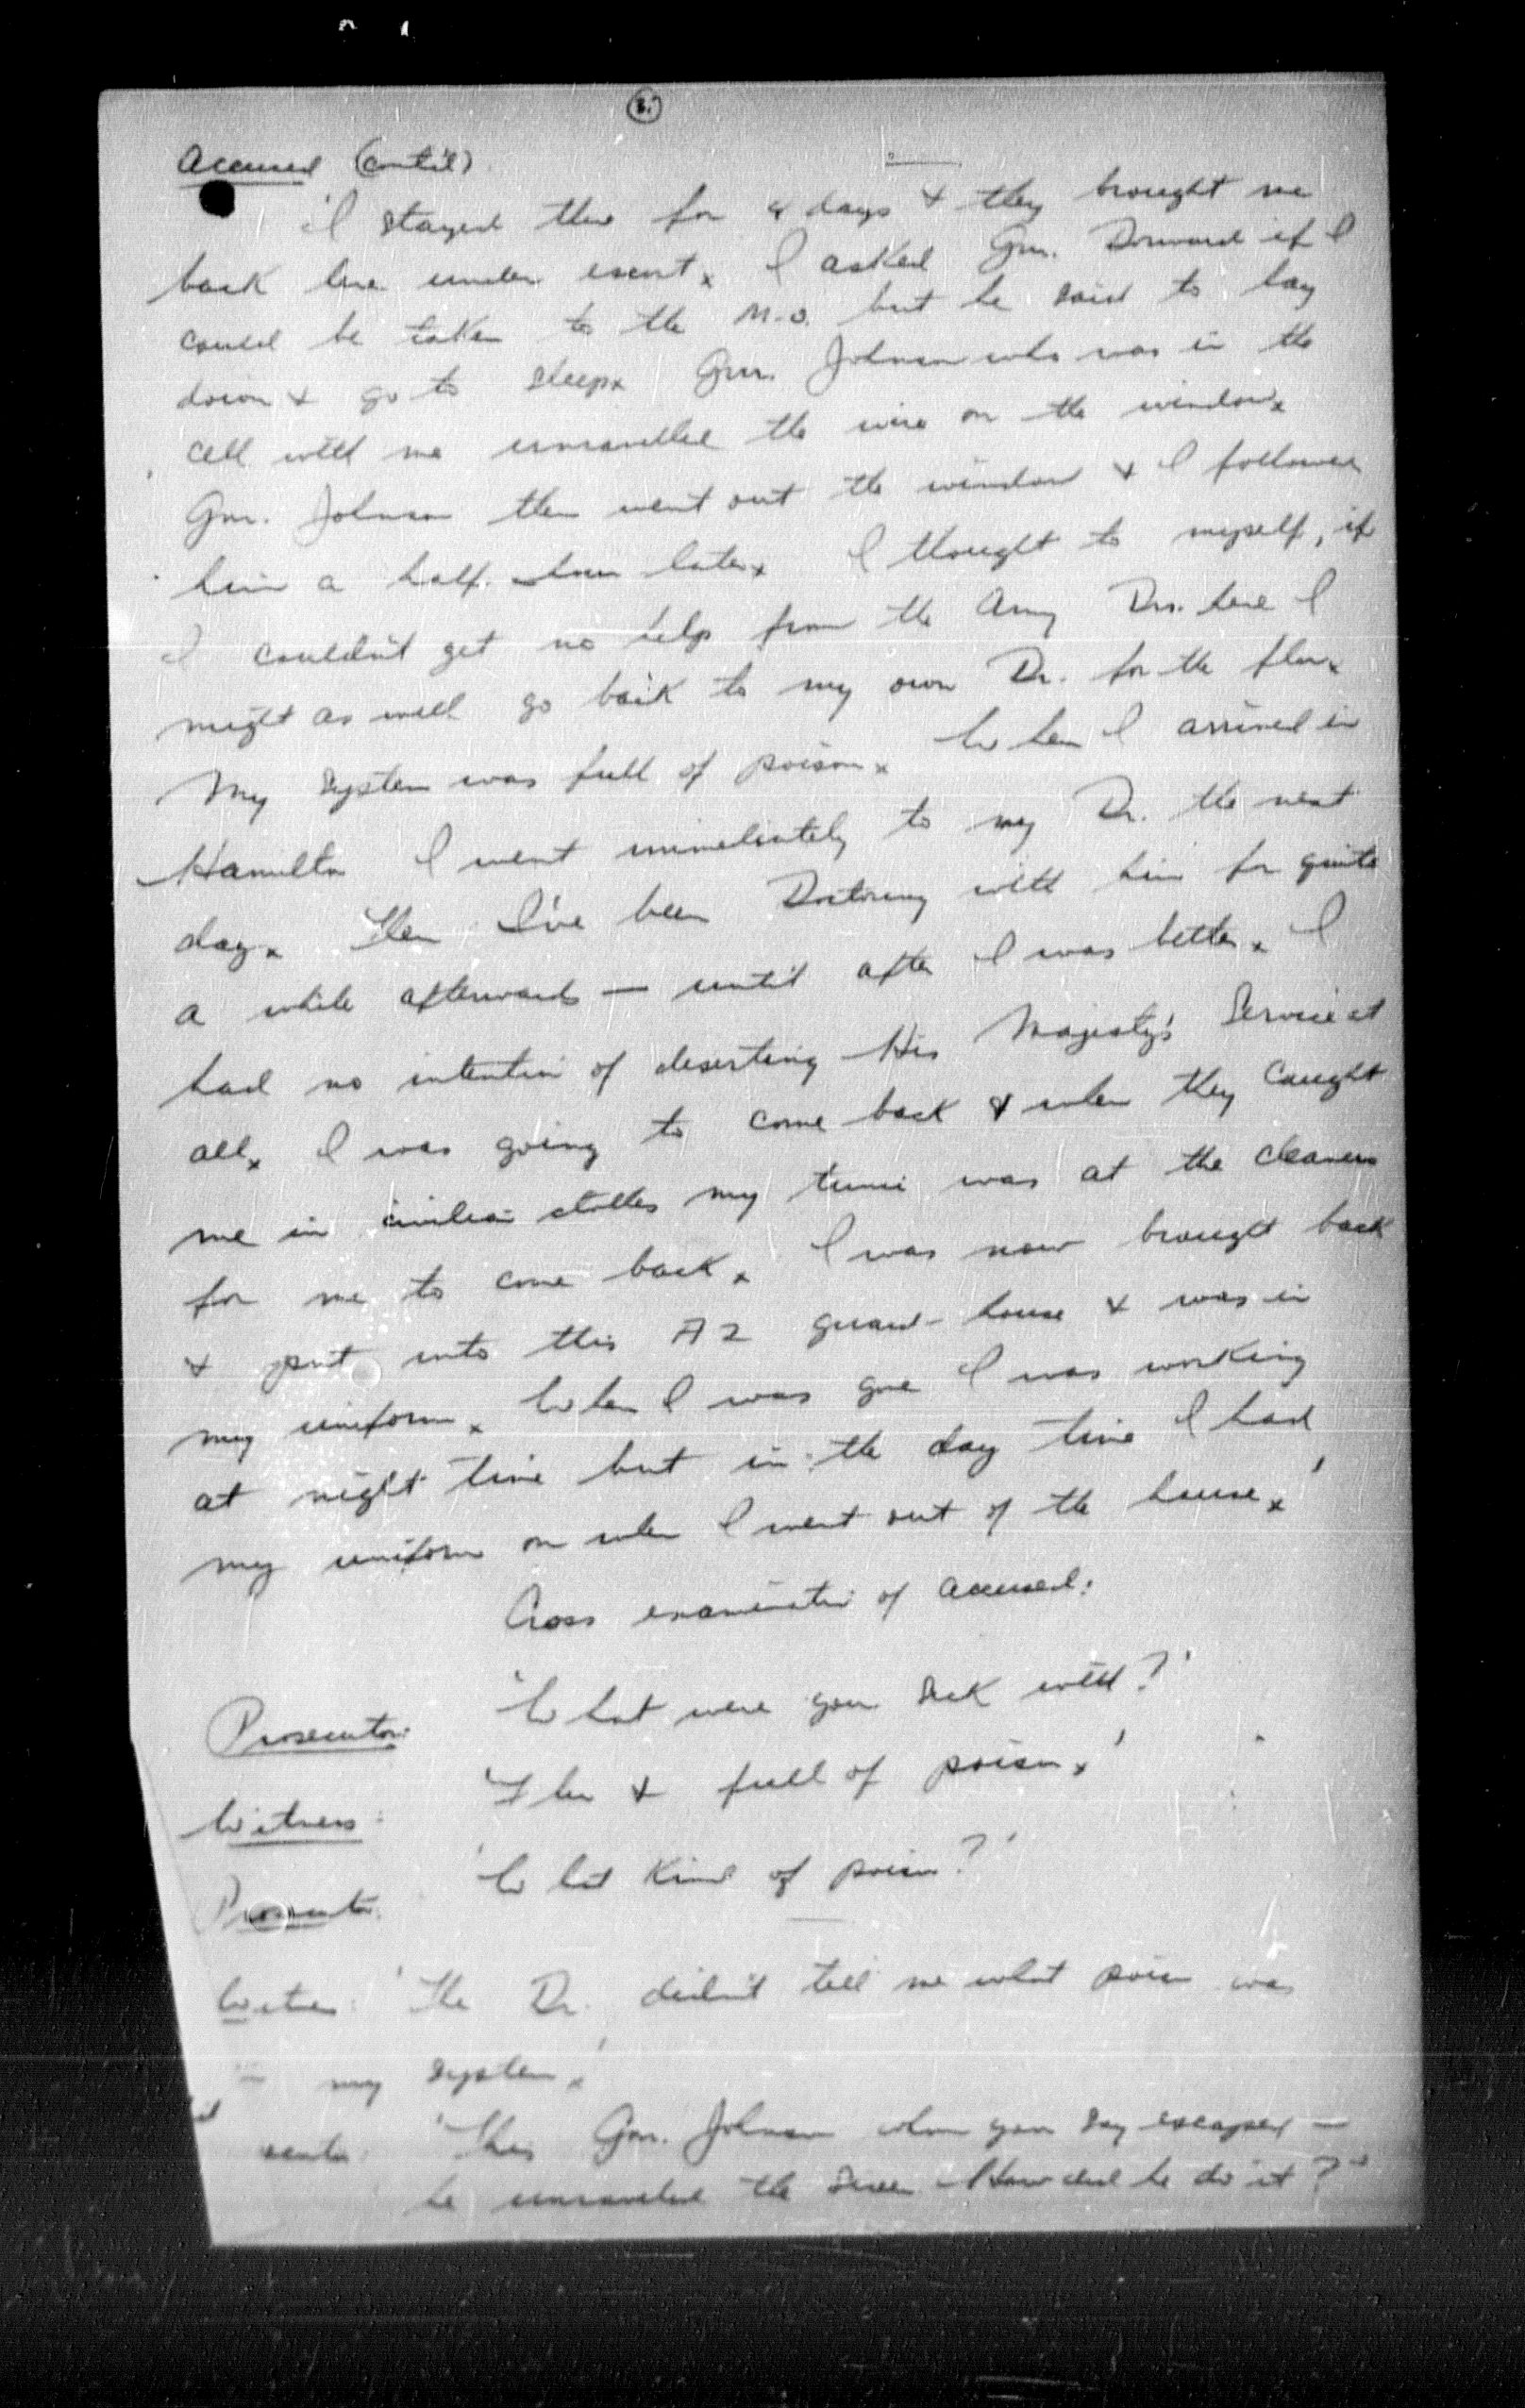 8.
Accused (cont'd)
'I stayed there for 8 days & they brought me
back here under escort x I asked Gnr. Dorward if I
could be taken to the M.O. but he said to lay
down & go to sleep x Gnr. Johnson who was in the
cell with me unravelled the wire on the window x
Gnr. Johnson then went out the window & I followed
him a half hour later x I thought to myself, if
I couldn't get no help from the Army Drs. here I
might as well go back to my own Dr. for the flu x
My system was full of poison x When I arrived in
Hamilton I went immediately to my Dr. the next
day x Then I've been Doctoring with him for quite
a while afterwards — until after I was better x I
had no intention of deserting His Majesty's Service at
all x I was going to come back & when they caught
me in civilian clothes my tunic was at the cleaners
for me to come back x I was now brought back
& put into this A2 guard-house & was in
my uniform x When I was gone I was working
at night time but in the day time I had
my uniform on when I went out of the house x'
Cross examination of Accused:
Prosecutor: 'What were you sick with?'
Witness: 'Flu & full of poison x'
Prosecutor: 'What kind of poison?'
Witness: 'The Dr. didn't tell me what poison was
my system x'
'This Gnr. Johnson whom you say escaped —
he unravelled the screen. How did he do it?'